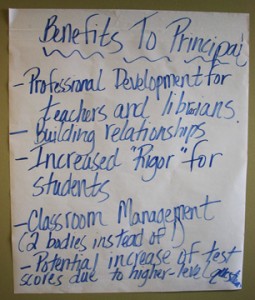 Benefits To Principal
- Professional Development for
teachers and librarians.
- Building relationships
- Increased "Rigor" for
students
- Classroom Management
(2 bodies instead of
- Potential increase of test
scores due to higher-level